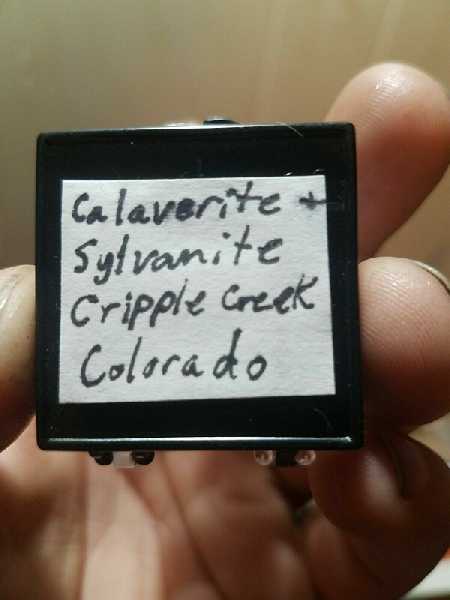 Calaverite +
Sylvanite
Cripple Creek
Colorado